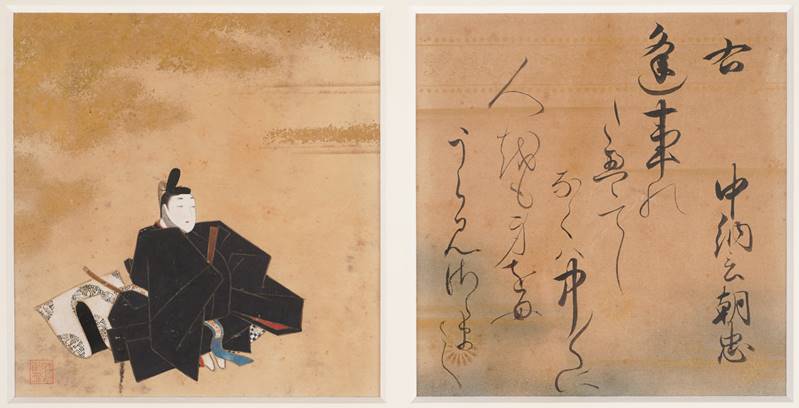 右
中納言朝忠
逢事の
たえてし
なくハ中〱に
人越も身をも
うらみさらまし